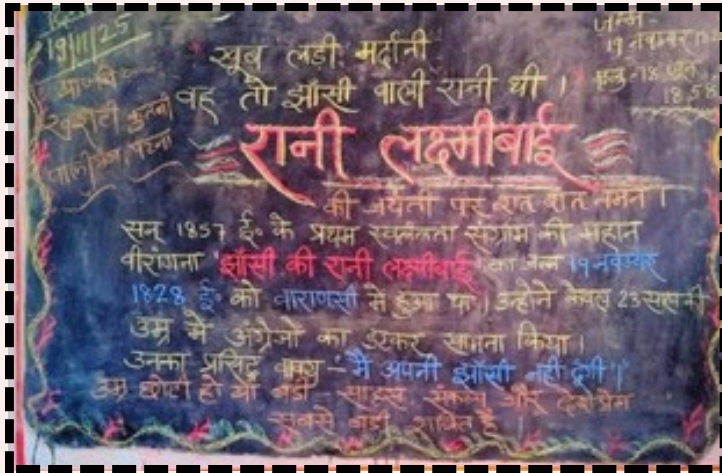 19/11/25
जन्म-
19 नवम्बर
खूब लड़ी मर्दानी
वह तो झाँसी वाली रानी थी।
18 जून
1858
रानी लक्ष्मीबाई
की जयंती पर शत शत नमन।
सन् 1857 ई॰ के प्रथम स्वतंत्रता संग्राम की महान
वीरांगना 'झाँसी की रानी लक्ष्मीबाई' का जन्म 19 नवम्बर
1828 ई॰ को वाराणसी में हुआ था। उन्होंने केवल 23 साल की
उम्र में अंग्रेजो का डटकर सामना किया।
उनका प्रसिद्ध वाक्य - 'मै अपनी झाँसी नही दूंगी'।
उम्र छोटी हो या बड़ी - साहस, संकल्प और देशप्रेम
सबसे बड़ी शक्ति है